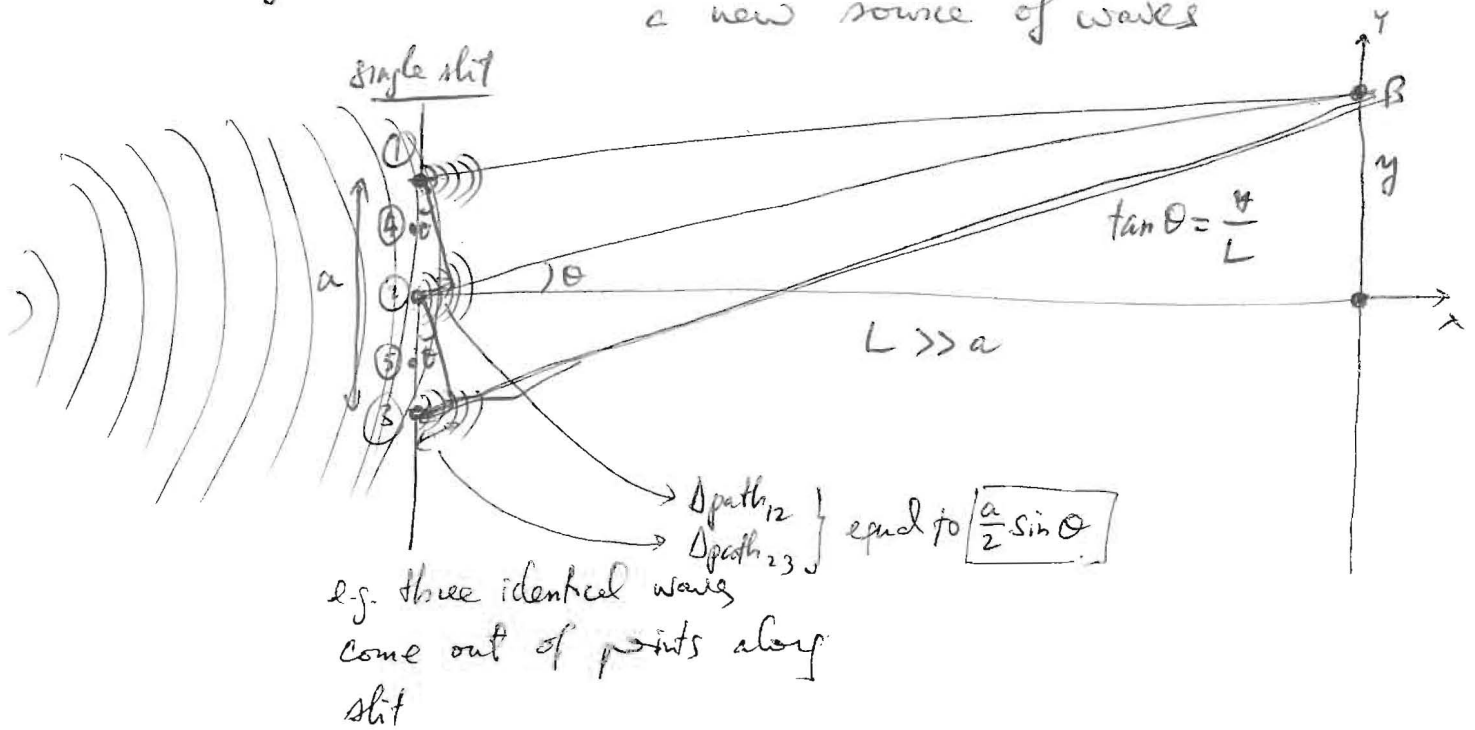 a new source of waves
single slit
Y
B
y
tan θ = y/L
①
④
a
②
θ
⑤
③
θ
θ
L >> a
X
Δpath₁₂
Δpath₂₃ } equal to a/2 sin θ
e.g. three identical waves
come out of points along
slit